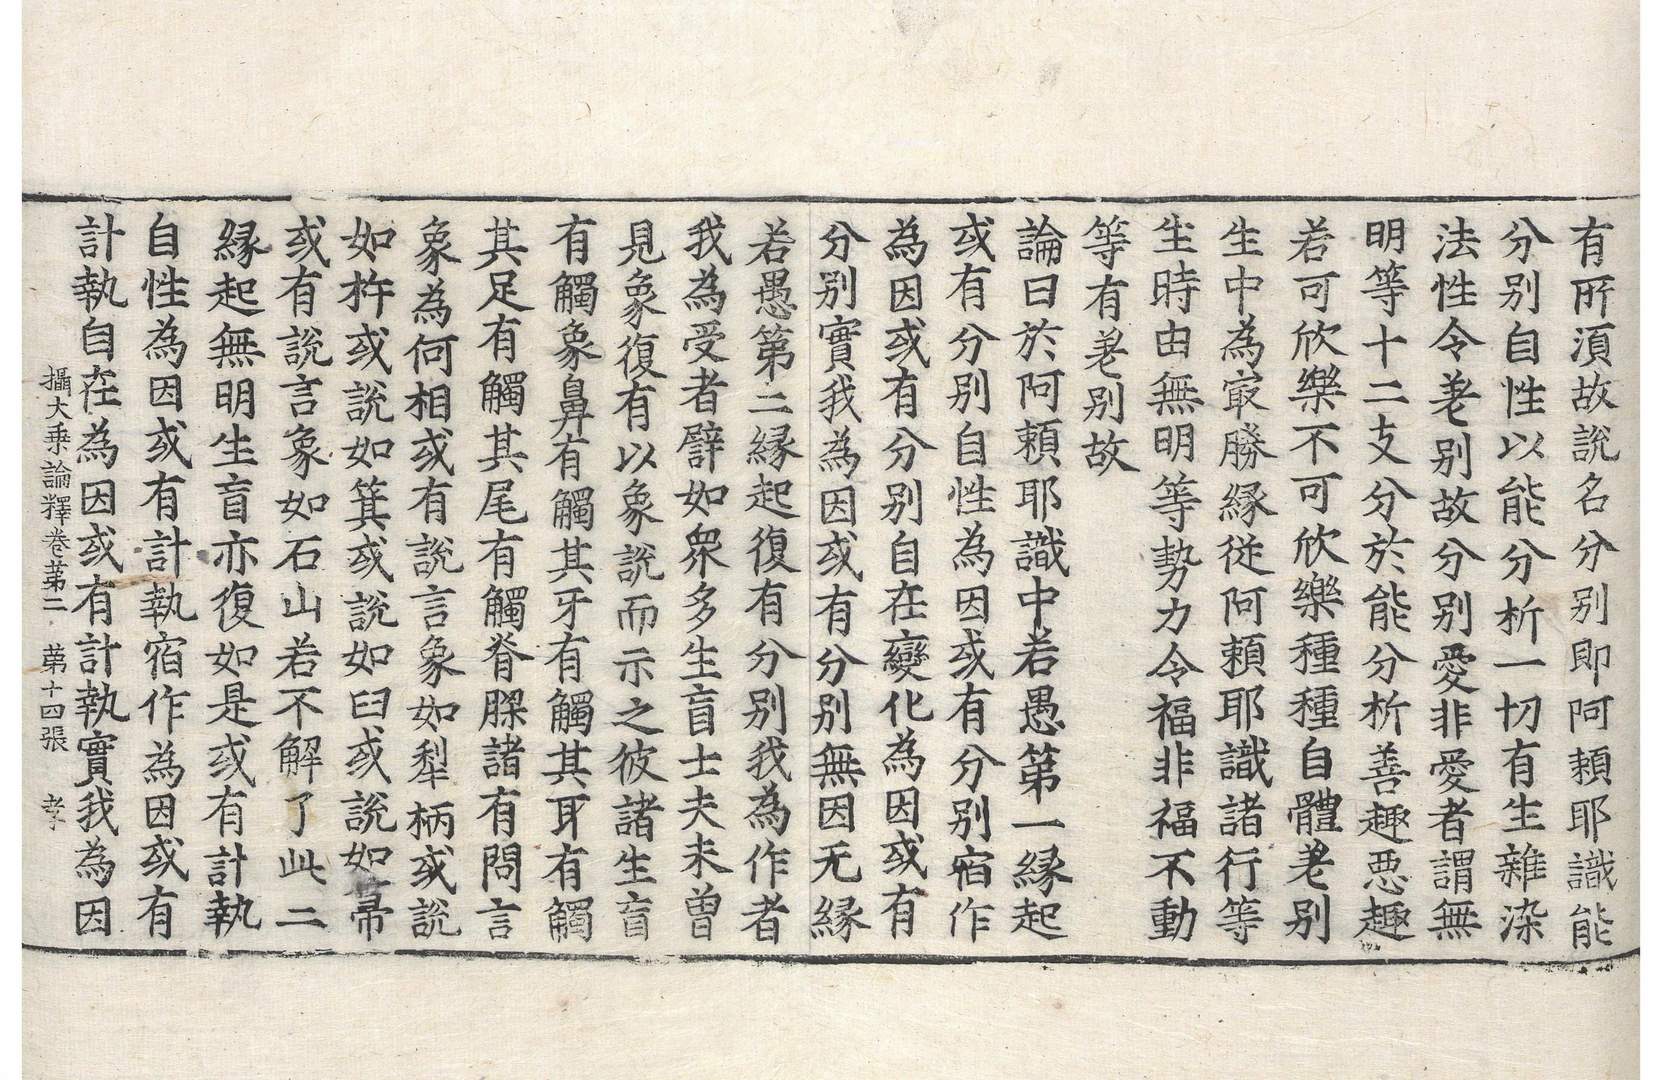 有所湏故說名分別即阿頼耶識能
分别自性以能分析一切有生雜染
法性令差别故分别愛非愛者謂無
明等十二支分於能分析善趣悪趣
若可欣樂不可欣樂種種自體差别
生中為冣勝縁從阿頼耶識諸行等
生時由無明等勢力令福非福不動
等有差别故
論曰於阿頼耶識中若愚第一縁起
或有分别自性為因或有分别宿作
為因或有分别自在變化為因或有
分别實我為因或有分别無因无縁
若愚第二縁起復有分别我為作者
我為受者譬如衆多生盲士夫未曽
見象復有以象說而示之彼諸生盲
有觸象鼻有觸其牙有觸其耳有觸
其足有觸其尾有觸脊膫諸有問言
象為何相或有說言象如犁柄或說
如杵或說如箕或說如臼或說如帚
或有說言象如石山若不解了此二
縁起無明生盲亦復如是或有計執
自性為因或有計執宿作為因或有
計執自在為因或有計執實我為因
攝大乗論釋卷苐二 苐十四張 孝